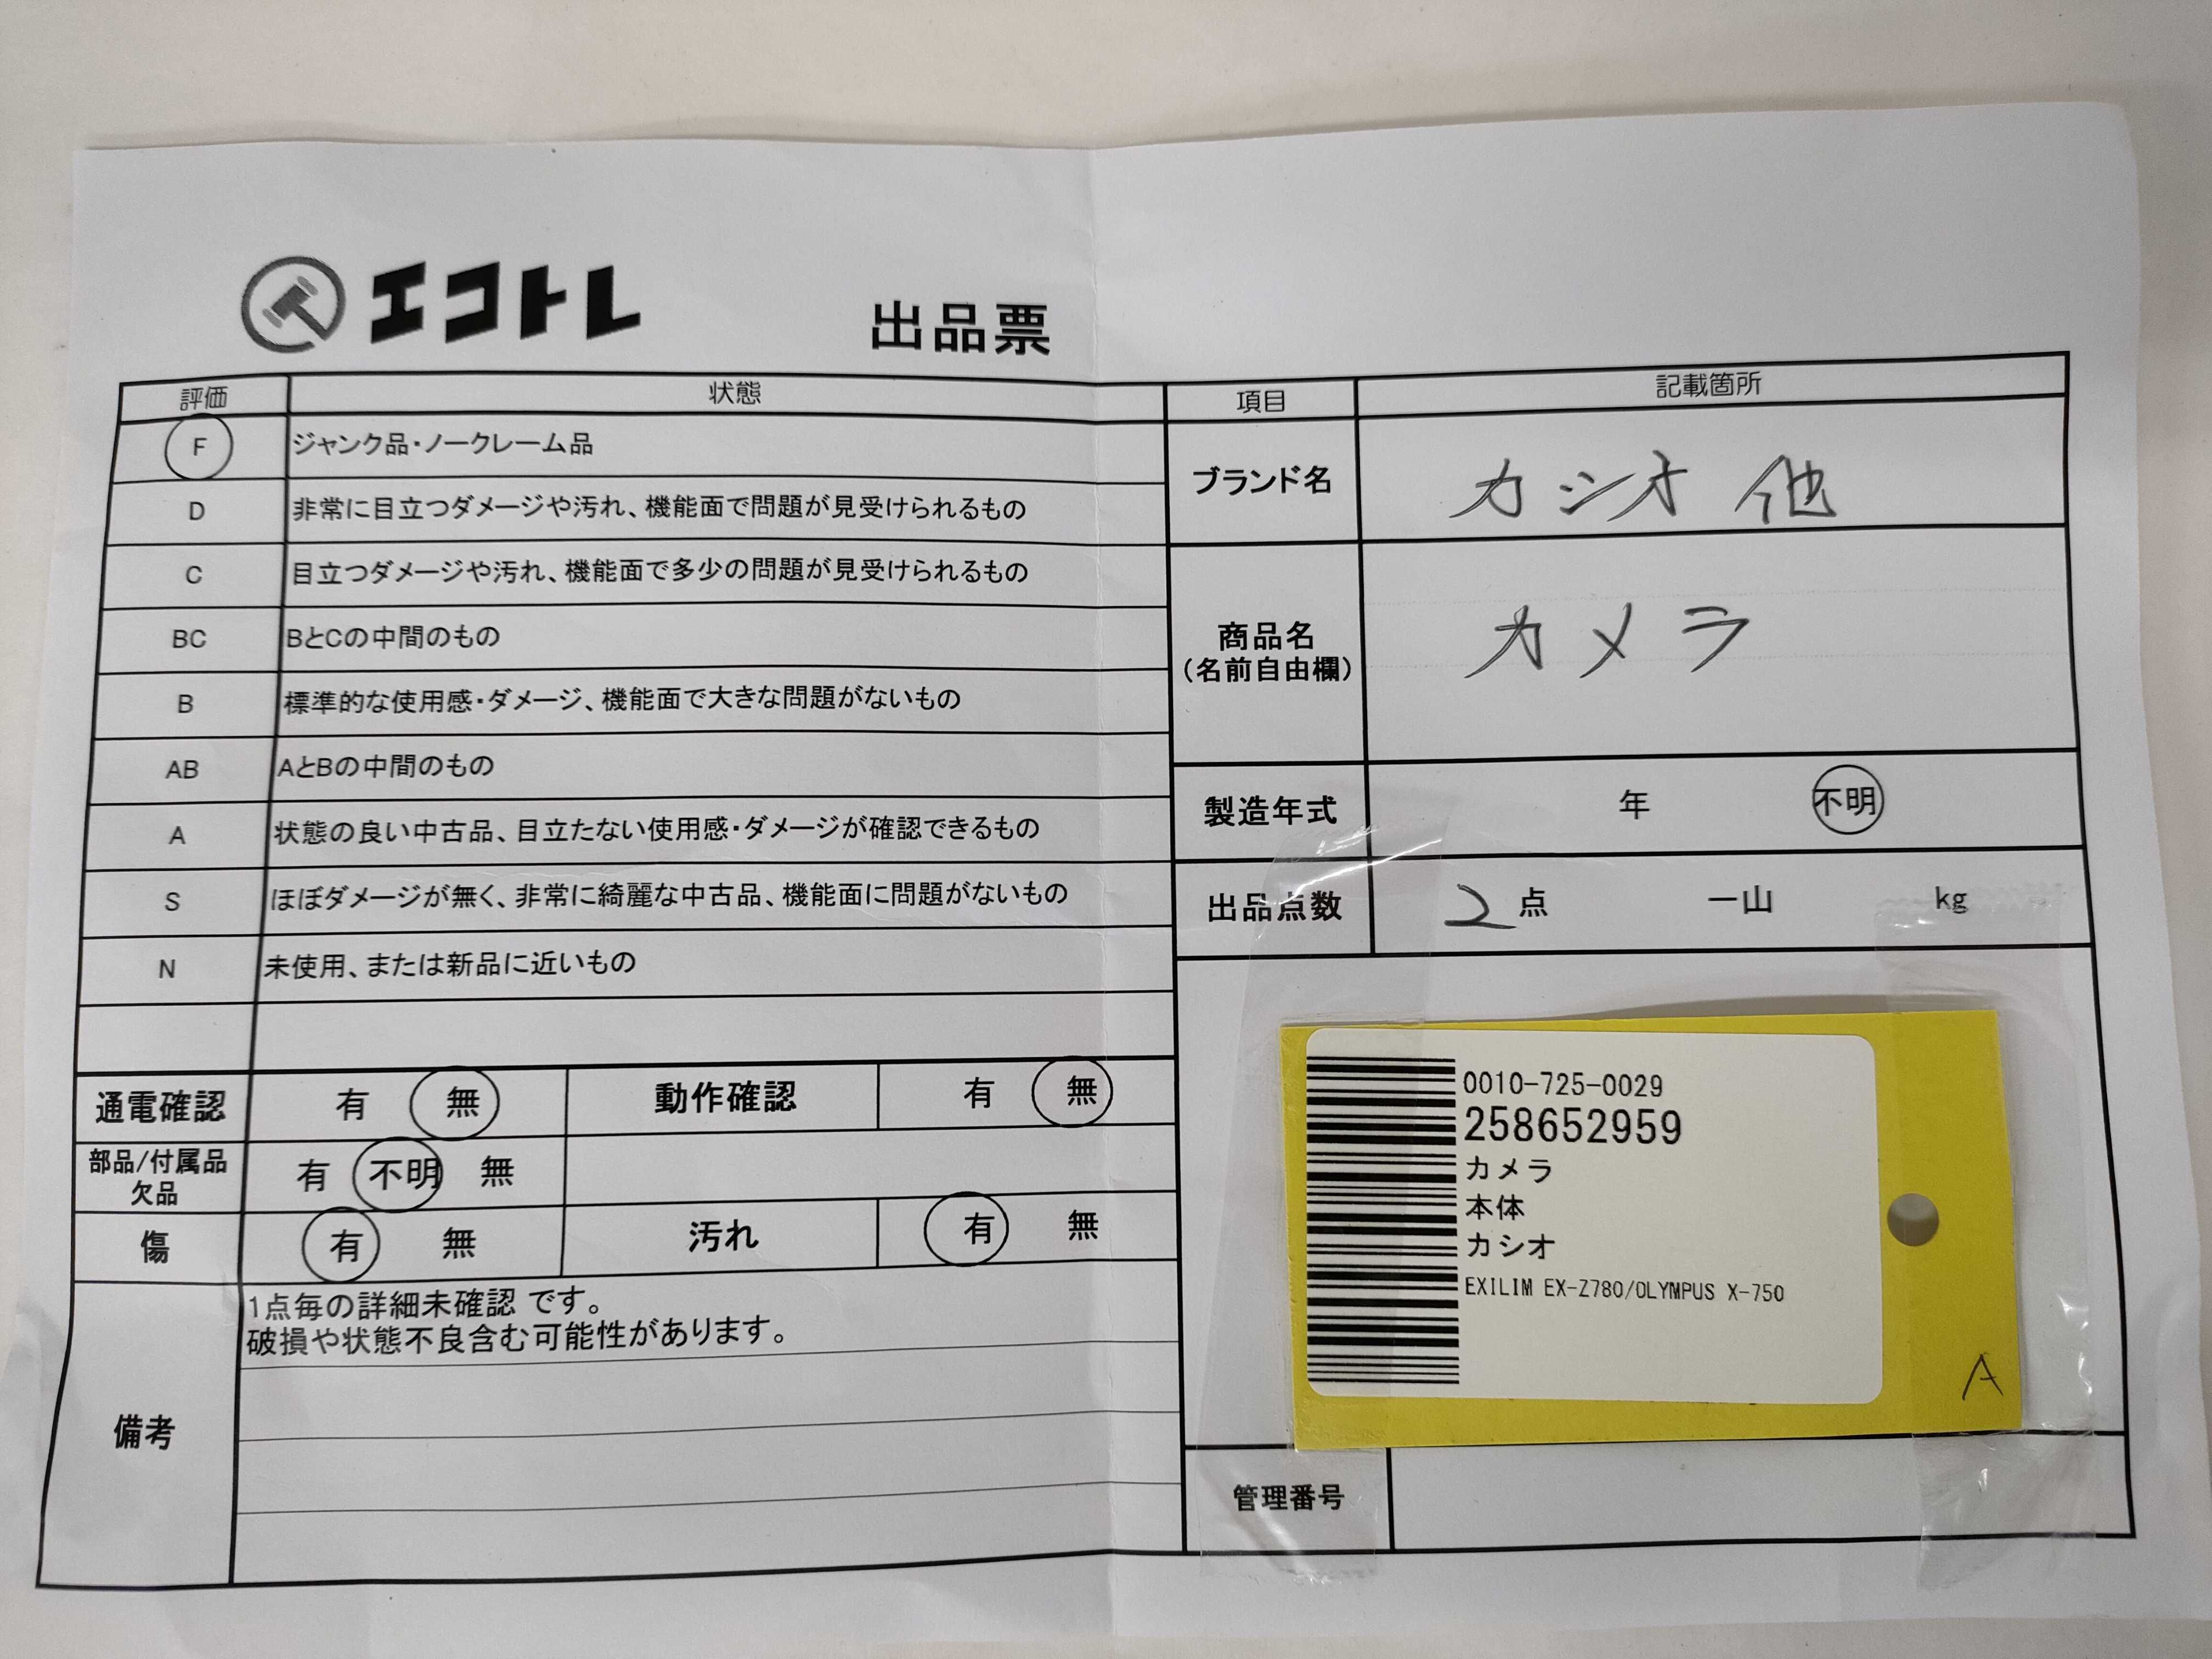 エコトレ
出品票
評価 状態
F ジャンク品・ノークレーム品
D 非常に目立つダメージや汚れ、機能面で問題が見受けられるもの
C 目立つダメージや汚れ、機能面で多少の問題が見受けられるもの
BC BとCの中間のもの
B 標準的な使用感・ダメージ、機能面で大きな問題がないもの
AB AとBの中間のもの
A 状態の良い中古品、目立たない使用感・ダメージが確認できるもの
S ほぼダメージが無く、非常に綺麗な中古品、機能面に問題がないもの
N 未使用、または新品に近いもの
通電確認 有 無 動作確認 有 無
部品/付属品
欠品
有 不明 無
傷 有 無 汚れ 有 無
備考
1点毎の詳細未確認 です。
破損や状態不良含む可能性があります。
項目 記載箇所
ブランド名 カシオ 他
商品名
(名前自由欄)
カメラ
製造年式 年 不明
出品点数 2 点 一山 kg
0010-725-0029
258652959
カメラ
本体
カシオ
EXILIM EX-Z780/OLYMPUS X-750
A
管理番号